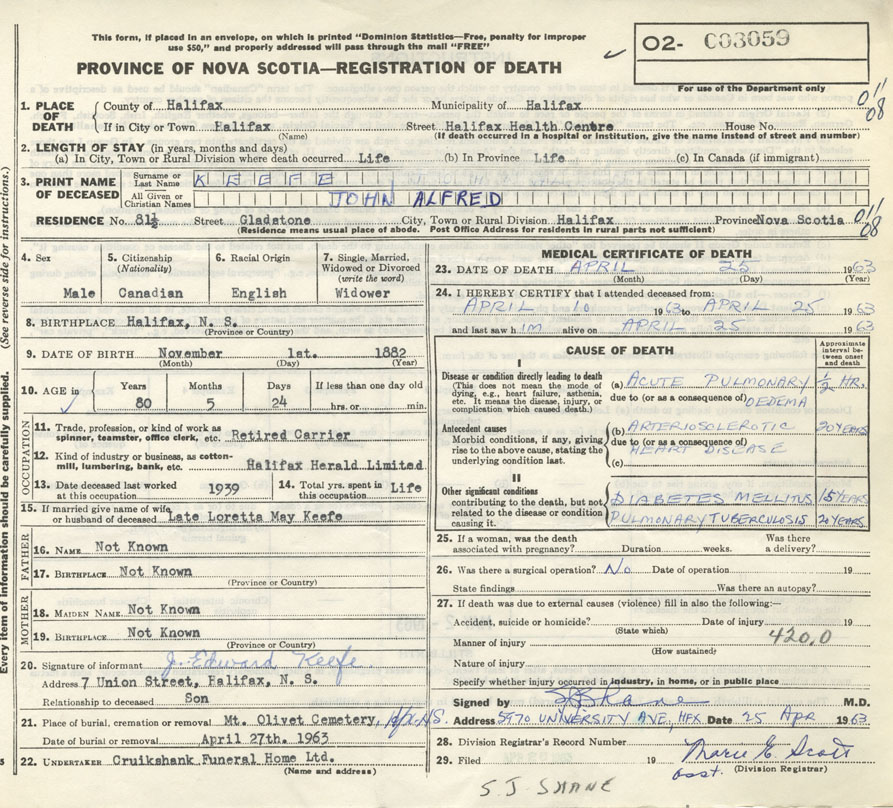 This form, if placed in an envelope, on which is printed "Dominion Statistics—Free, penalty for improper
use $50," and properly addressed will pass through the mail "FREE"
O2- C03059
PROVINCE OF NOVA SCOTIA—REGISTRATION OF DEATH
For use of the Department only
1. PLACE OF DEATH
County of Halifax Municipality of Halifax
011
08
If in City or Town Halifax Street Halifax Health Centre House No.
(Name) (If death occurred in a hospital or institution, give the name instead of street and number)
2. LENGTH OF STAY (in years, months and days)
(a) In City, Town or Rural Division where death occurred Life (b) In Province Life (c) In Canada (if immigrant)
3. PRINT NAME OF DECEASED
Surname or Last Name KEEFE
All Given or Christian Names JOHN ALFRED
RESIDENCE No. 81½ Street Gladstone City, Town or Rural Division Halifax Province Nova Scotia
011
08
(Residence means usual place of abode. Post Office Address for residents in rural parts not sufficient)
4. Sex
Male
5. Citizenship
(Nationality)
Canadian
6. Racial Origin
English
7. Single, Married,
Widowed or Divorced
(write the word)
Widower
8. BIRTHPLACE Halifax, N. S.
(Province or Country)
9. DATE OF BIRTH November 1st. 1882
(Month) (Day) (Year)
10. AGE in
Years Months Days If less than one day old
80 5 24 hrs. or min.
OCCUPATION
11. Trade, profession, or kind of work as
spinner, teamster, office clerk, etc. Retired Carrier
12. Kind of industry or business, as cotton-
mill, lumbering, bank, etc. Halifax Herald Limited
13. Date deceased last worked
at this occupation 1939
14. Total yrs. spent in
this occupation Life
15. If married give name of wife
or husband of deceased late Loretta May Keefe
FATHER
16. NAME Not Known
17. BIRTHPLACE Not Known
(Province or Country)
MOTHER
18. MAIDEN NAME Not Known
19. BIRTHPLACE Not Known
(Province or Country)
20. Signature of informant J. Edward Keefe
Address 7 Union Street, Halifax, N. S.
Relationship to deceased Son
21. Place of burial, cremation or removal Mt. Olivet Cemetery, Hfx. N.S.
Date of burial or removal April 27th. 1963
22. UNDERTAKER Cruikshank Funeral Home Ltd.
(Name and address)
MEDICAL CERTIFICATE OF DEATH
23. DATE OF DEATH APRIL 25 1963
(Month) (Day) (Year)
24. I HEREBY CERTIFY that I attended deceased from:
APRIL 10 1963 to APRIL 25 1963
and last saw h IM alive on APRIL 25 1963
CAUSE OF DEATH
Approximate interval between onset and death
I
Disease or condition directly leading to death
(This does not mean the mode of
dying, e.g., heart failure, asthenia,
etc. It means the disease, injury, or
complication which caused death.)
(a) ACUTE PULMONARY ½ HR,
due to (or as a consequence of) OEDEMA
Antecedent causes
Morbid conditions, if any, giving
rise to the above cause, stating the
underlying condition last.
(b) ARTERIOSCLEROTIC 20 YEARS
due to (or as a consequence of)
HEART DISEASE
(c)
II
Other significant conditions
contributing to the death, but not
related to the disease or condition
causing it.
DIABETES MELLITUS 15 YEARS
PULMONARY TUBERCULOSIS 20 YEARS
25. If a woman, was the death
associated with pregnancy? Duration weeks. Was there
a delivery?
26. Was there a surgical operation? No Date of operation 19
State findings Was there an autopsy?
27. If death was due to external causes (violence) fill in also the following:—
Accident, suicide or homicide? Date of injury 19
(State which)
Manner of injury 420.0
(How sustained)
Nature of injury
Specify whether injury occurred in industry, in home, or in public place
Signed by SJ Shane M.D.
Address 5970 UNIVERSITY AVE, HFX. Date 25 Apr 1963.
28. Division Registrar's Record Number
29. Filed 19 Marie E. Scott
asst. (Division Registrar)
S. J. SHANE
(See reverse side for instructions.)
Every item of information should be carefully supplied.